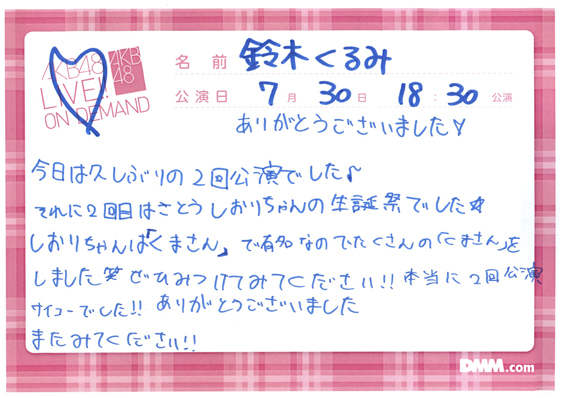 AKB48
LIVE!!
ON DEMAND
AKB
48
名前 鈴木くるみ
公演日 7月30日 18:30公演
ありがとうございました♡
今日は久しぶりの2回公演でした♪
それに2回目はさとうしおりちゃんの生誕祭でした☆
しおりちゃんは「くまさん」で有名なのでたくさんの「くまさん」を
しました笑 ぜひみつけてみてください!! 本当に2回公演
サイコーでした!! ありがとうございました
またみてください!!
DMM.com